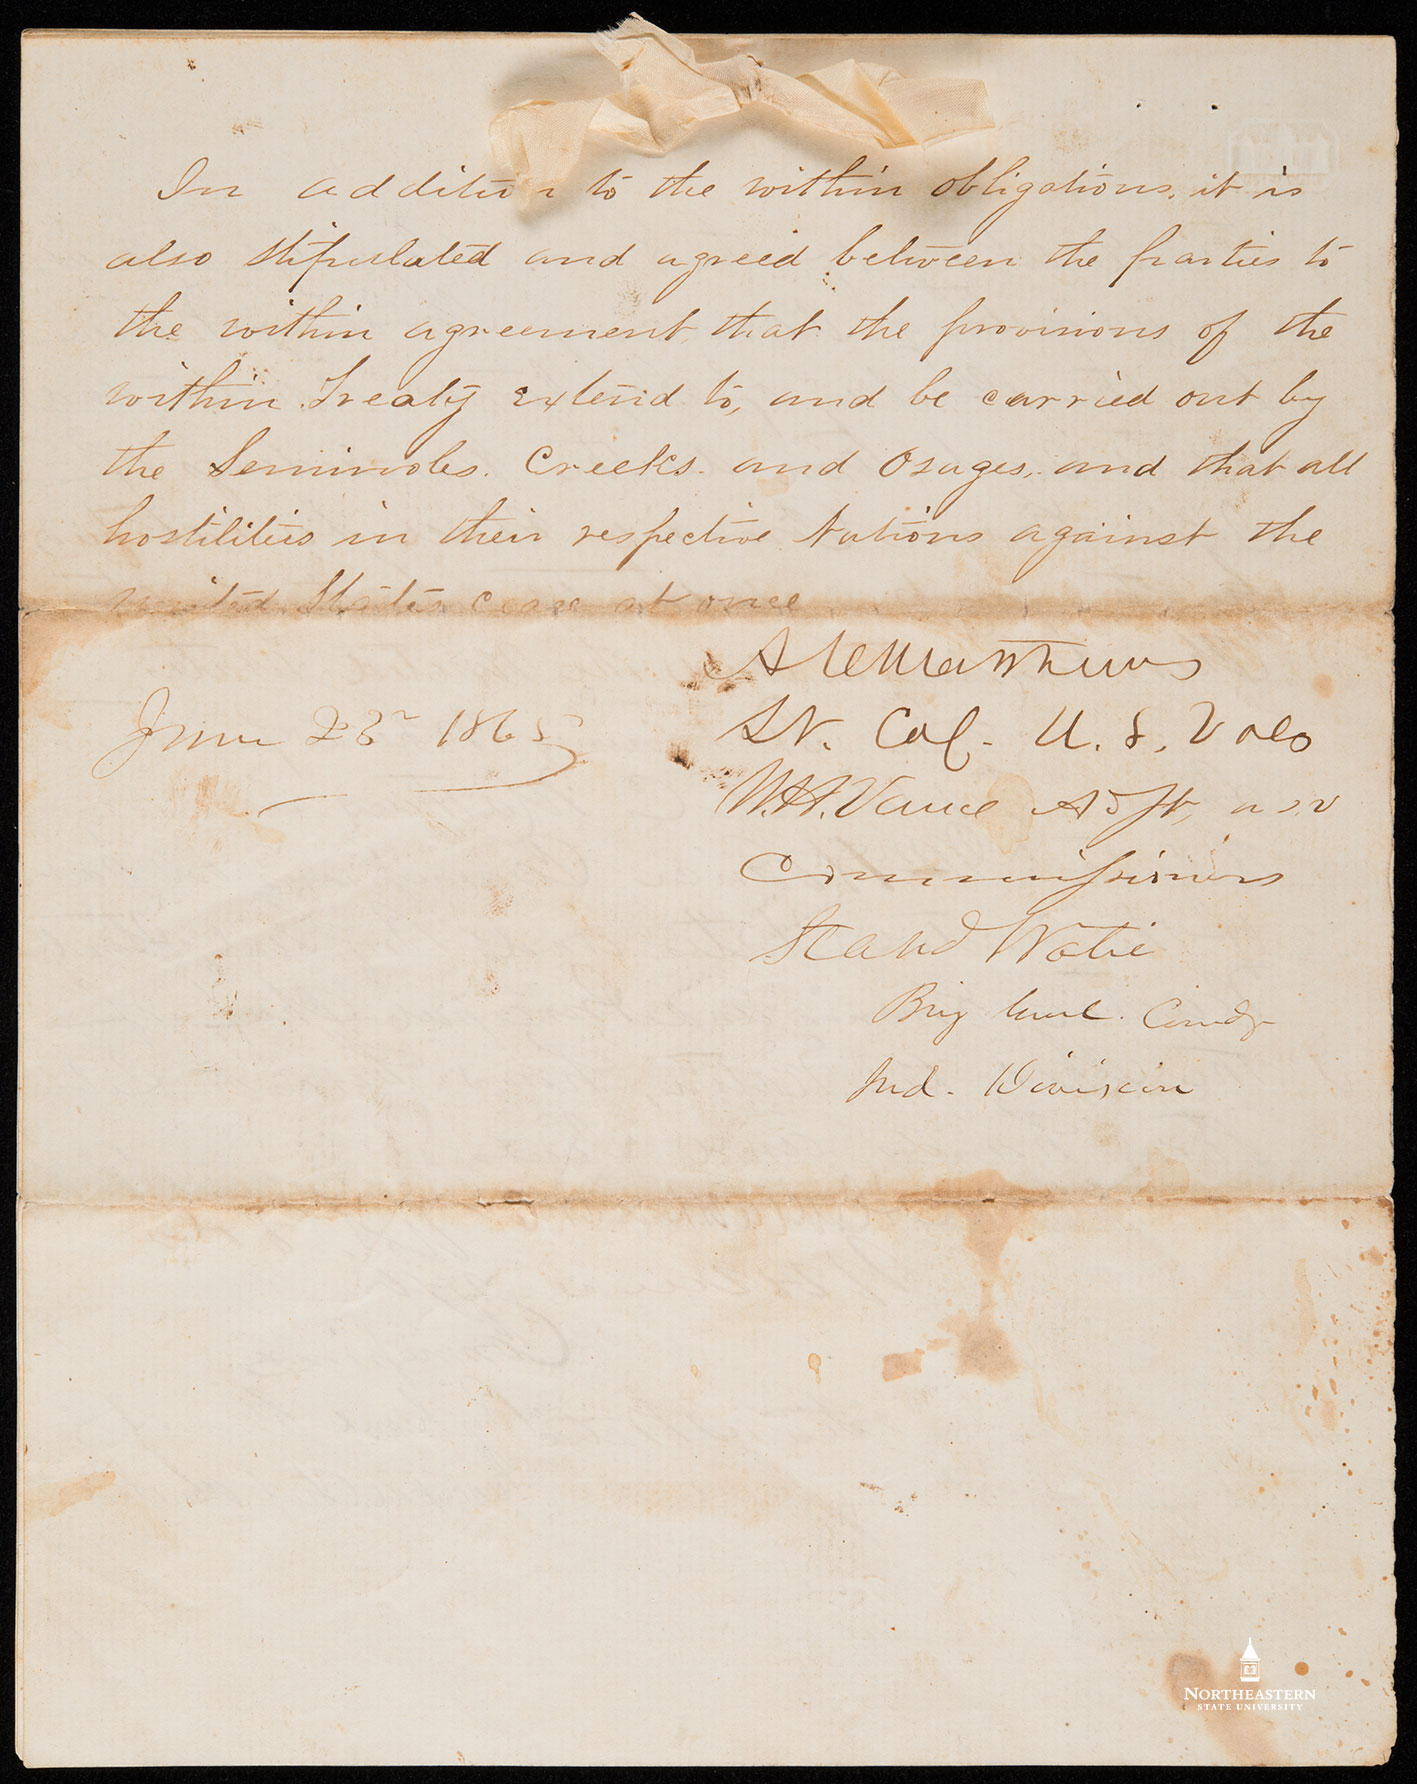 In addition to the within obligations, it is
also stipulated and agreed between the parties to
the within agreement, that the provisions of the
within Treaty extend to, and be carried out by
the Seminoles. Creeks. and Osages, and that all
hostilities in their respective Nations against the
united States cease at once
A C Matthews
June 23rd 1865
Lt. Col. U. S. Vols
W. H. Vance Adjt, a.s.v
Commissioners
Stand Watie
Brig Genl. Comdg
Ind. Division
NORTHEASTERN
STATE UNIVERSITY